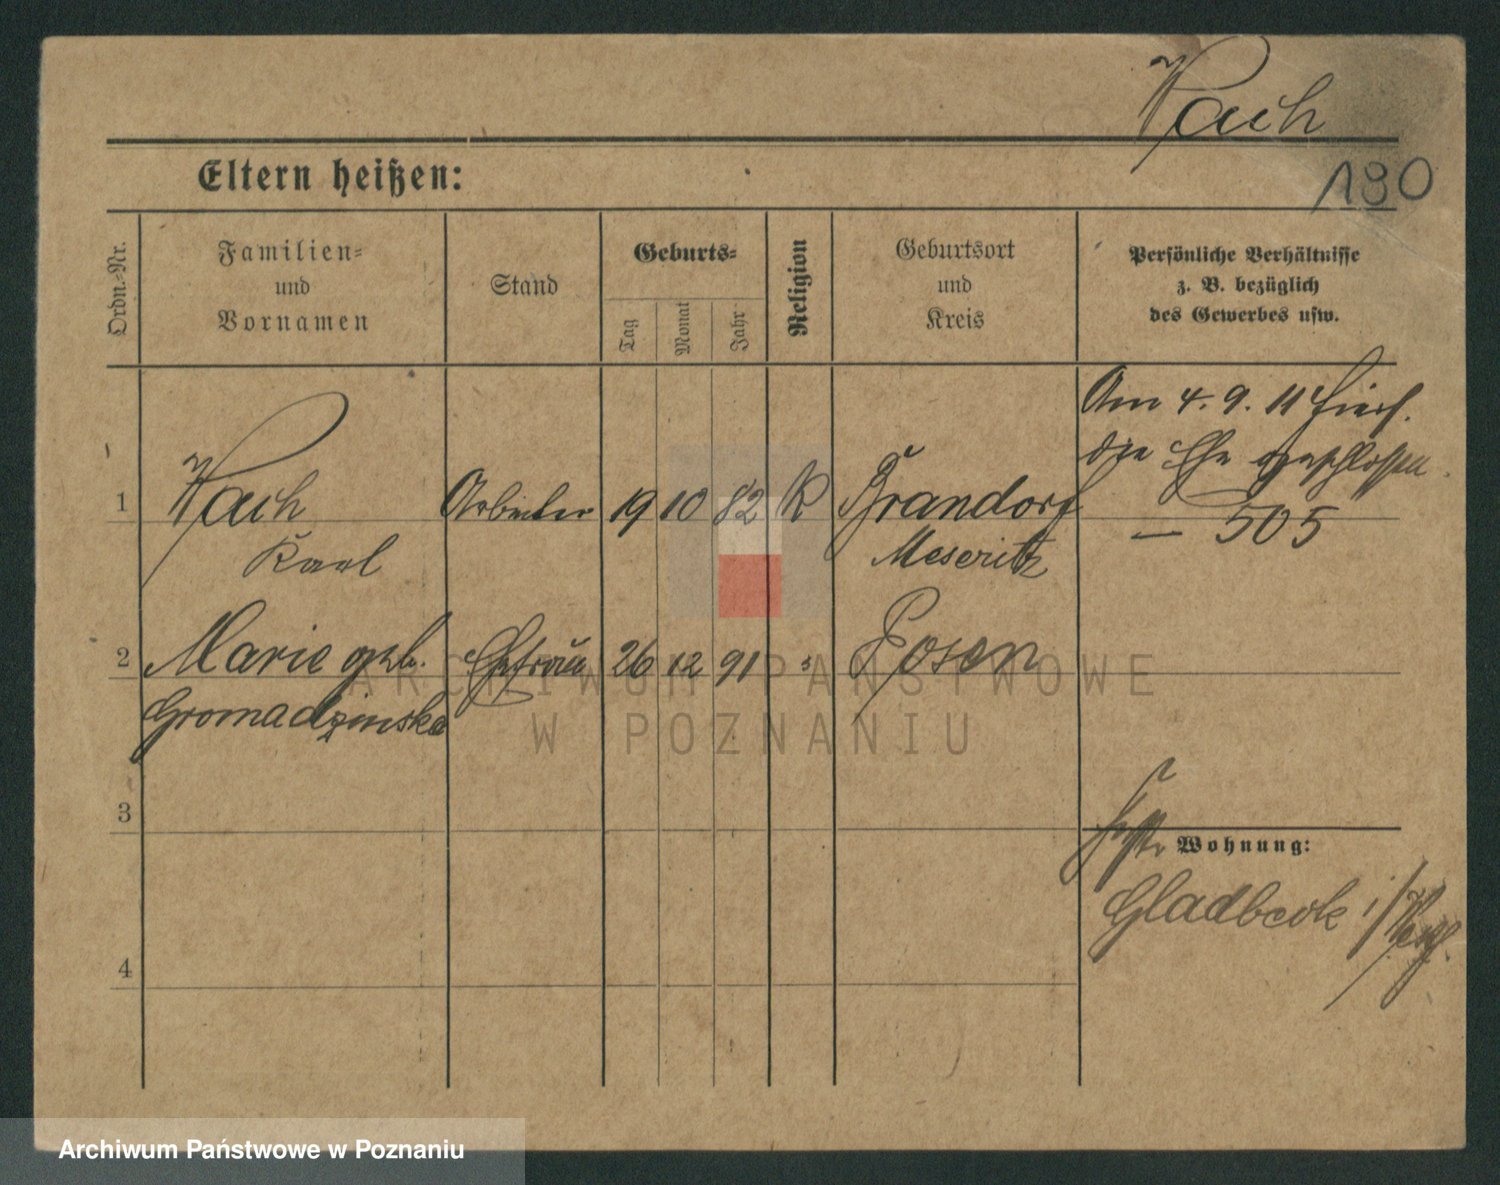 Wach
130
Eltern heißen:
Ordn.-Nr.
Familien-
und
Vornamen
Stand
Geburts-
Tag
Monat
Jahr
Religion
Geburtsort
und
Kreis
Persönliche Verhältnisse
z. B. bezüglich
des Gewerbes usw.
Am 4. 9. 11 hiers.
die Ehe geschlossen.
— 505
1 Wach Arbeiter 19 10 82 K Brandorf
Karl Meseritz
2 Marie geb. Ehefrau 26 12 91 " Posen
Gromadzinska
3
Wohnung:
Gladbeck i/Westf.
4
ARCHIWUM PAŃSTWOWE
W POZNANIU
Archiwum Państwowe w Poznaniu